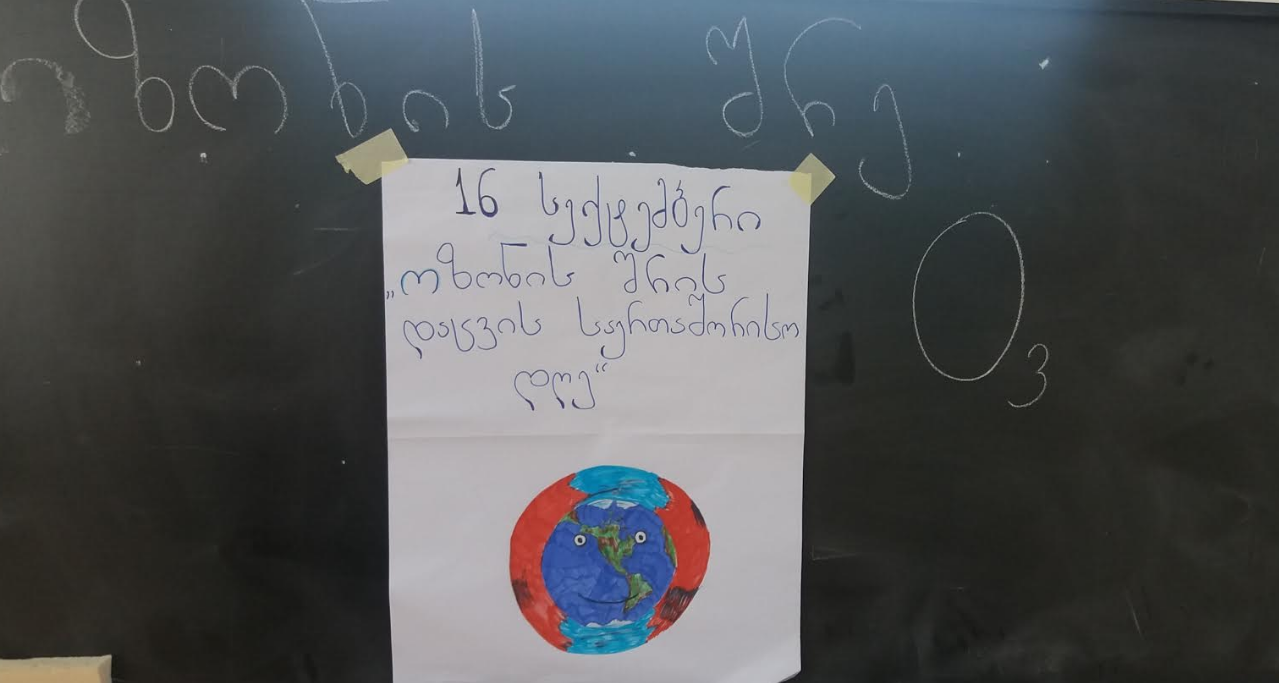 ოზონის შრე
16 სექტემბერი
„ოზონის შრის
დაცვის საერთაშორისო
დღე“
O3